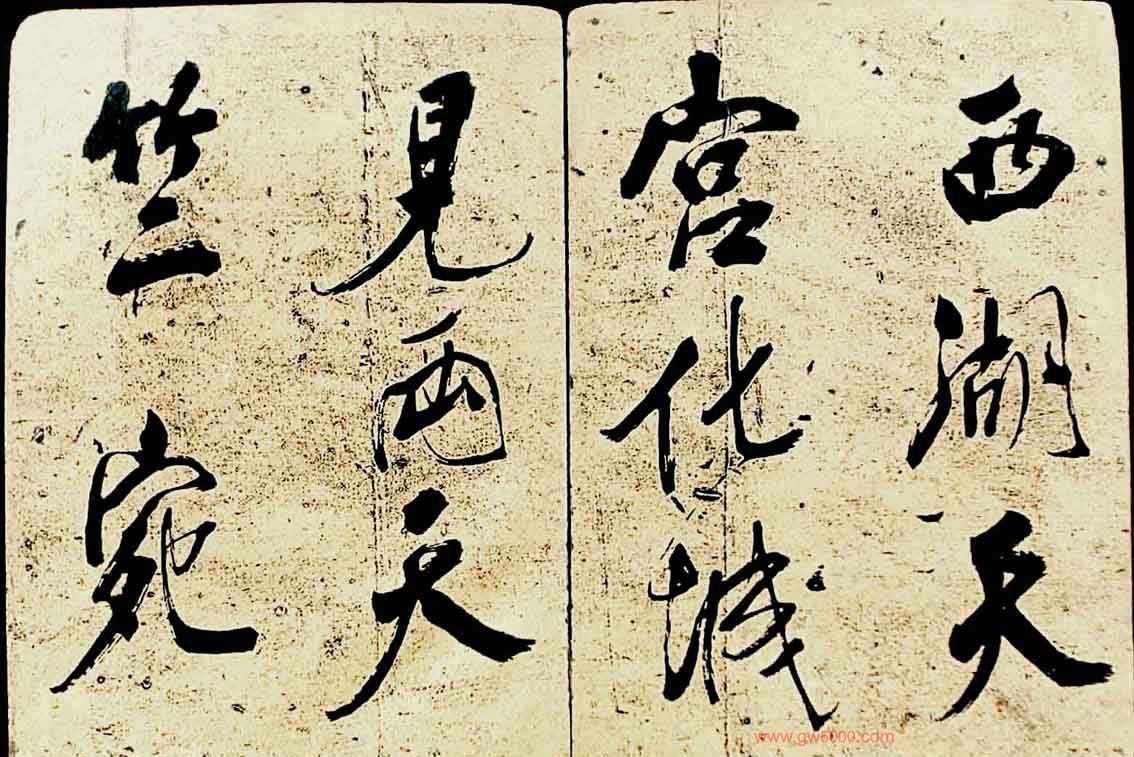 西湖天
宫化城
見西天
竺二宛
www.gw5000.com